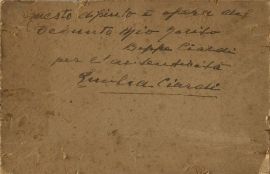 questo dipinto è opera del
defunto mio marito
Beppe Ciardi
per l'autenticità
Emilia Ciardi